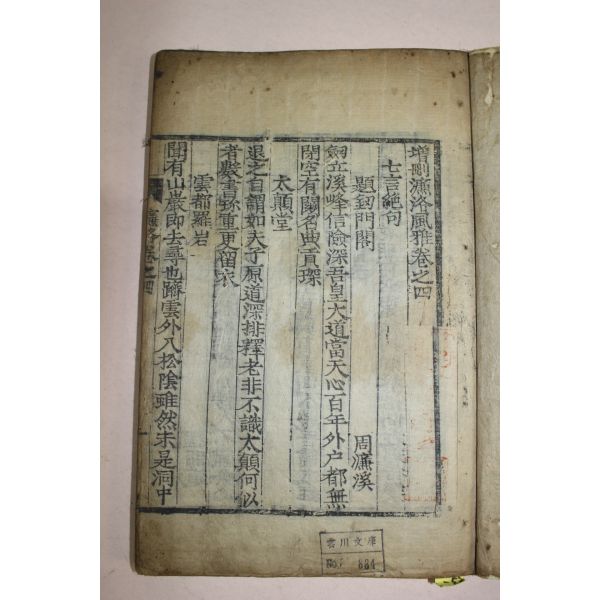 增刪濂洛風雅卷之四
七言絶句
題劒門閣
周濂溪
劒立溪峰信險深吾皇大道當天心百年外户都無
閉空有關名點貢琛
太顛堂
退之自謂如夫子原道深排釋老非不識太顛何似
者數書珎重更留衣
雲都羅岩
聞有山巖即去尋也躋雲外入松陰雖然未是洞中
濂洛卷之四
雲川文庫
No. 834